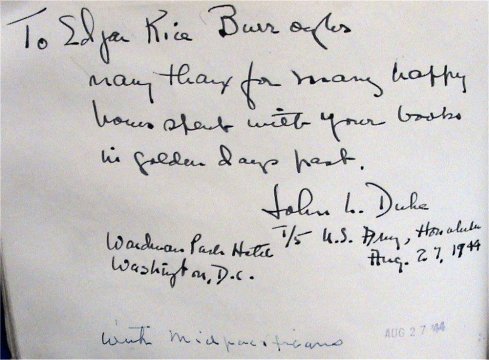 To Edgar Rice Burroughs
many thanx for many happy
hours spent with your books
in golden days past.
John L. Duke
T/5 U.S. Army, Honolulu
Aug. 27, 1944
Wardman Park Hotel
Washington, D.C.
with Midpacificans
AUG 27 '44